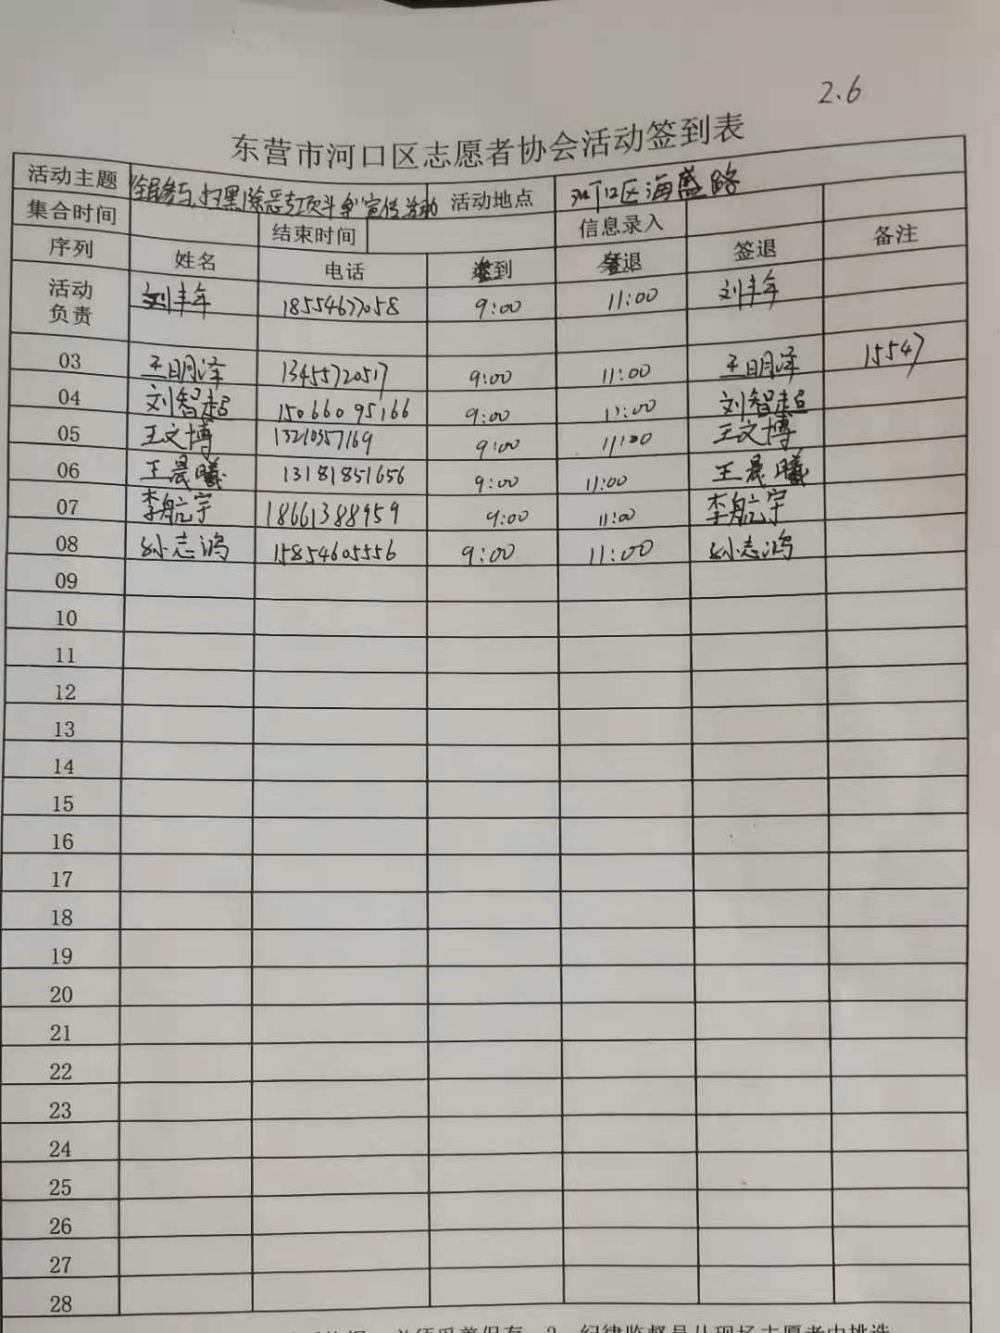 2.6
东营市河口区志愿者协会活动签到表
活动主题 全民参与,扫黑除恶专项斗争宣传活动 活动地点 河口区海盛路
集合时间 结束时间 信息录入
序列 姓名 电话 签到 签退 签退 备注
活动负责 刘丰年 18554677058 9:00 11:00 刘丰年
03 王明泽 13455720517 9:00 11:00 王明泽 15547
04 刘智超 15066095166 9:00 11:00 刘智超
05 王文博 13210357169 9:00 11:00 王文博
06 王晨曦 13181851656 9:00 11:00 王晨曦
07 李航宇 18661388959 9:00 11:00 李航宇
08 孙志鸿 15854605556 9:00 11:00 孙志鸿
09
10
11
12
13
14
15
16
17
18
19
20
21
22
23
24
25
26
27
28